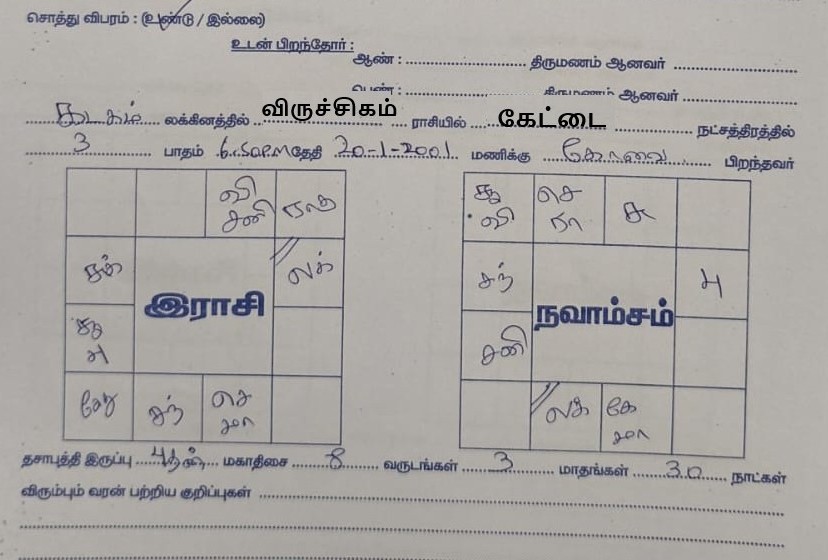 சொத்து விபரம் : (உண்டு / இல்லை)
உடன் பிறந்தோர் :
ஆண் : .................... திருமணம் ஆனவர் ....................
பெண் : .................... திருமணம் ஆனவர் ....................
கடகம் லக்கினத்தில் விருச்சிகம் ராசியில் கேட்டை நட்சத்திரத்தில்
3 பாதம் 6.50P.M தேதி 20-1-2001 மணிக்கு கோவை பிறந்தவர்
வி சனி ராகு
சுக் லக்
இராசி
சூ
கேது சந் செ மா
சூ வி செ ரா சு
சந்
நவாம்சம்
சனி
லக் கே மா
தசாபுத்தி இருப்பு புதன் மகாதிசை 8 வருடங்கள் 3 மாதங்கள் 30 நாட்கள்
விரும்பும் வரன் பற்றிய குறிப்புகள் ....................